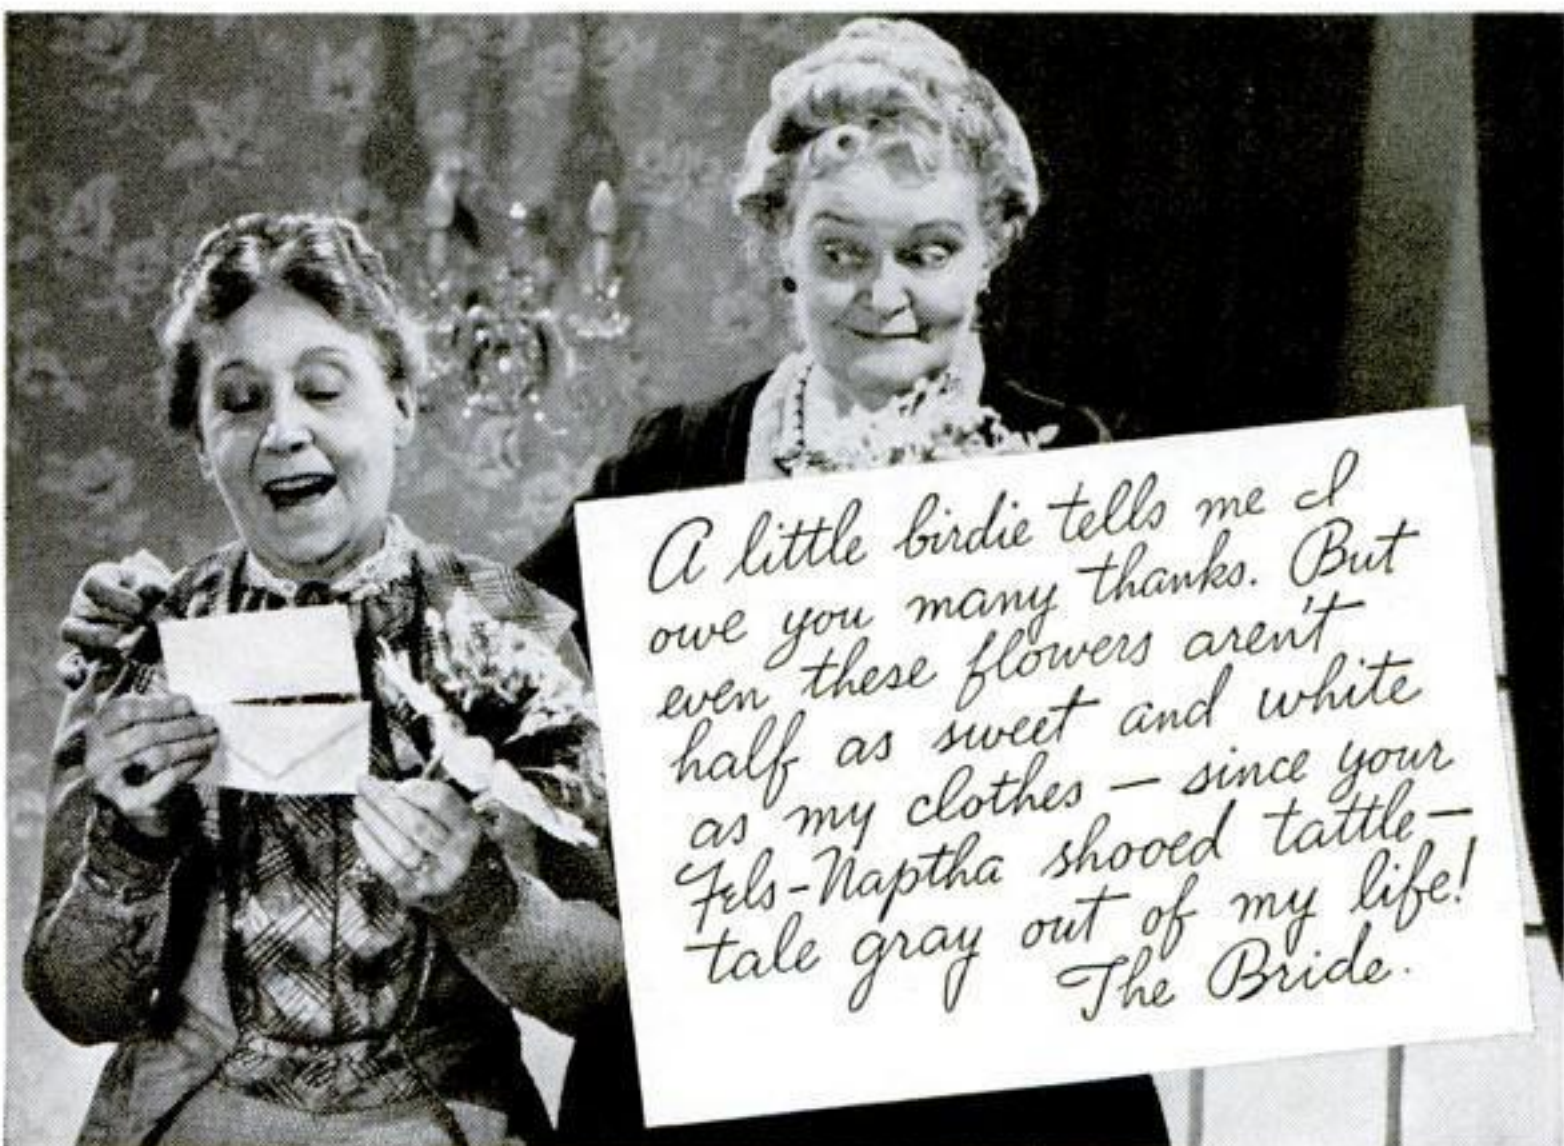 A little birdie tells me I
owe you many thanks. But
even these flowers aren't
half as sweet and white
as my clothes — since your
Fels-Naptha shooed tattle-
tale gray out of my life!
The Bride.